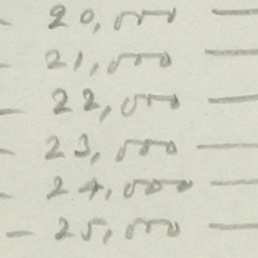 - 20,000 —
- 21,000 —
- 22,000 —
- 23,000 —
- 24,000 —
- 25,000 —